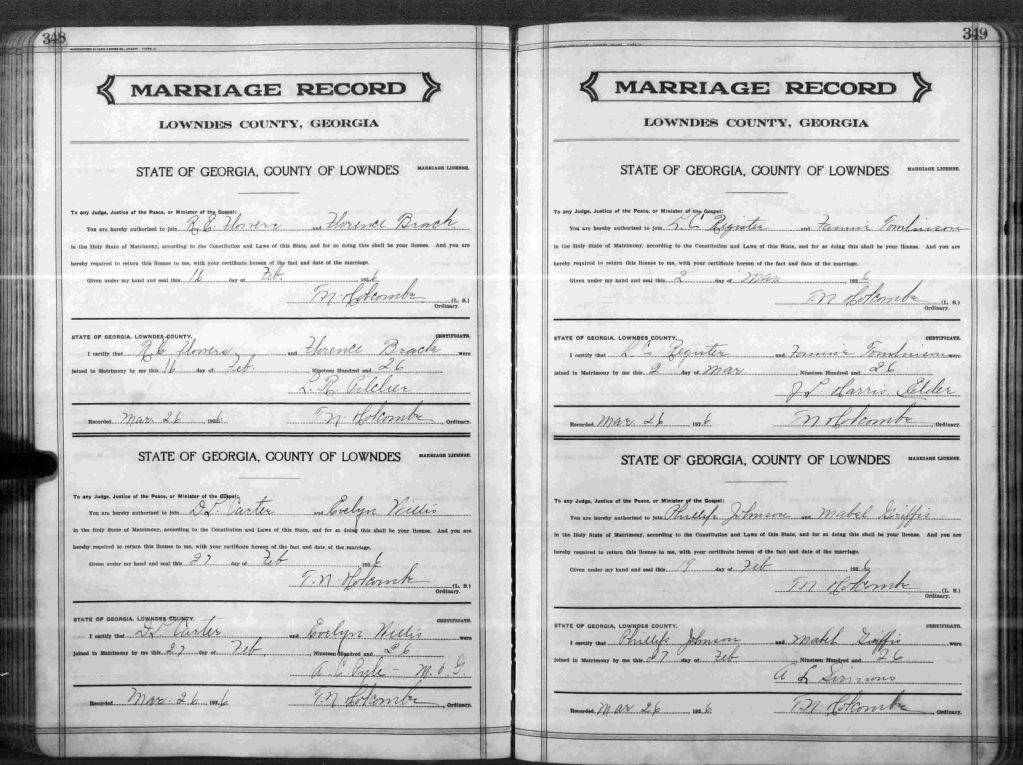 348
MARRIAGE RECORD
LOWNDES COUNTY, GEORGIA
STATE OF GEORGIA, COUNTY OF LOWNDES MARRIAGE LICENSE
To any Judge, Justice of the Peace, or Minister of the Gospel:
You are hereby authorised to join R E Flowers and Florence Brack
in the Holy State of Matrimony, according to the Constitution and Laws of this State, and for so doing this shall be your license. And you are
hereby required to return this license to me, with your certificate hereon of the fact and date of the marriage.
Given under my hand and seal this 16 day of Feb. 1926
T.N. Holcombe (L. S.)
Ordinary.
STATE OF GEORGIA, LOWNDES COUNTY. CERTIFICATE.
I certify that R.E. Flowers and Florence Brack were
joined in Matrimony by me this 16 day of Feb. Nineteen Hundred and 26
L. R. Pilcher
Recorded Mar. 26 1926 T.N. Holcombe, Ordinary.
STATE OF GEORGIA, COUNTY OF LOWNDES MARRIAGE LICENSE
To any Judge, Justice of the Peace, or Minister of the Gospel:
You are hereby authorized to join D.L. Carter and Evelyn Willis
in the Holy State of Matrimony, according to the Constitution and Laws of this State, and for so doing this shall be your license. And you are
hereby required to return this license to me, with your certificate hereon of the fact and date of the marriage.
Given under my hand and seal this 27 day of Feb 1926
T.N. Holcomb (L. S.)
Ordinary.
STATE OF GEORGIA, LOWNDES COUNTY. CERTIFICATE.
I certify that D.L. Carter and Evelyn Willis were
joined in Matrimony by me this 27 day of Feb. Nineteen Hundred and 26
A. C. Pyle - M. O. G.
Recorded Mar. 26 1926 T.N Holcombe, Ordinary.
349
MARRIAGE RECORD
LOWNDES COUNTY, GEORGIA
STATE OF GEORGIA, COUNTY OF LOWNDES MARRIAGE LICENSE
To any Judge, Justice of the Peace, or Minister of the Gospel:
You are hereby authorised to join L. C. Register and Fannie Tomlinson
in the Holy State of Matrimony, according to the Constitution and Laws of this State, and for so doing this shall be your license. And you are
hereby required to return this license to me, with your certificate hereon of the fact and date of the marriage.
Given under my hand and seal this 2 day of Mar 1926
T N Holcombe (L. S.)
Ordinary.
STATE OF GEORGIA, LOWNDES COUNTY. CERTIFICATE.
I certify that L C Register and Fannie Tomlinson were
joined in Matrimony by me this 2 day of Mar Nineteen Hundred and 26
J L Harris Elder
Recorded Mar. 26 1926 T N Holcombe, Ordinary.
STATE OF GEORGIA, COUNTY OF LOWNDES MARRIAGE LICENSE
To any Judge, Justice of the Peace, or Minister of the Gospel:
You are hereby authorised to join Phillip Johnson and Mabel Griffis
in the Holy State of Matrimony, according to the Constitution and Laws of this State, and for so doing this shall be your license. And you are
hereby required to return this license to me, with your certificate hereon of the fact and date of the marriage.
Given under my hand and seal this day of Feb 1926
T N Holcomb (L. S.)
Ordinary.
STATE OF GEORGIA, LOWNDES COUNTY. CERTIFICATE.
I certify that Phillip Johnson and Mabel Griffis were
joined in Matrimony by me this 27 day of Feb Nineteen Hundred and 26
A L Sirmons
Recorded Mar 26 1926 T.N Holcombe, Ordinary.